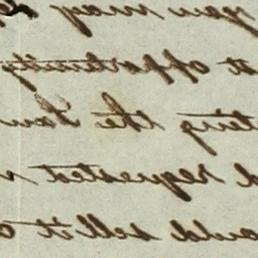 you may
st opportunity
ting the Law
d requested
ould sell it